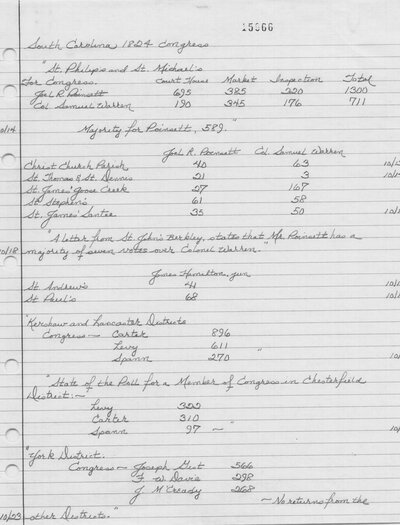 15666
South Carolina 1824 Congress
"St. Philips and St. Michael's
For Congress. Court House Market Inspection Total
Joel R Poinsett 695 385 220 1300
Col. Samuel Warren 190 345 176 711
10/14 Majority for Poinsett, 589."
Joel R. Poinsett Col. Samuel Warren
Christ Church Parish 40 63
St. Thomas & St. Dennis 21 3
St. James' Goose Creek 27 167
St. Stephen's 61 58
St. James' Santee 35 50
"A letter from St. John's Berkley, states that Mr. Poinsett has a
10/18 majority of seven votes over Colonel Warren."
James Hamilton, jun
St. Andrew's 41
St. Paul's 68
"Kershaw and Lancaster Districts
Congress — Carter 896
Levy 611
Spann 270 "
"State of the Poll for a Member of Congress in Chesterfield
District:—
Levy 322
Carter 310
Spann 97 ~"
"York District.
Congress — Joseph Gist 566
F W Davie 298
J McCready 268
— No returns from the
10/23 other Districts."